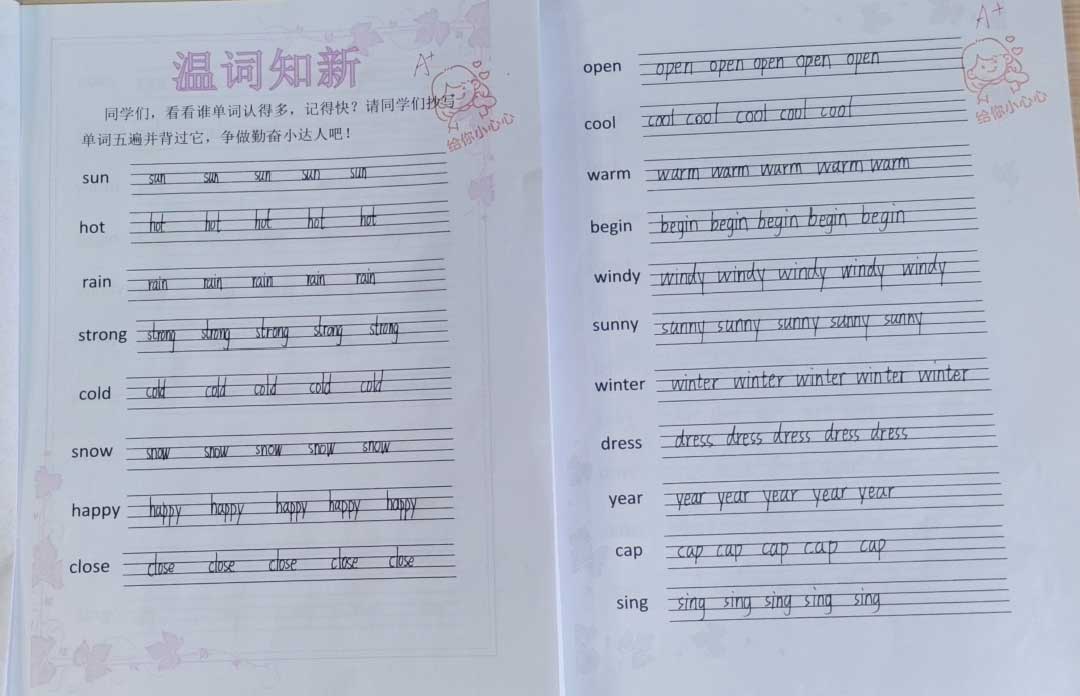 温词知新
A+
同学们，看看谁单词认得多，记得快？请同学们抄写
单词五遍并背过它，争做勤奋小达人吧！
给你小心心
sun sun sun sun sun sun
hot hot hot hot hot hot
rain rain rain rain rain rain
strong strong strong strong strong strong
cold cold cold cold cold cold
snow snow snow snow snow snow
happy happy happy happy happy happy
close close close close close close
A+
open open open open open open
给你小心心
cool cool cool cool cool cool
warm warm warm warm warm warm
begin begin begin begin begin begin
windy windy windy windy windy windy
sunny sunny sunny sunny sunny sunny
winter winter winter winter winter winter
dress dress dress dress dress dress
year year year year year year
cap cap cap cap cap cap
sing sing sing sing sing sing